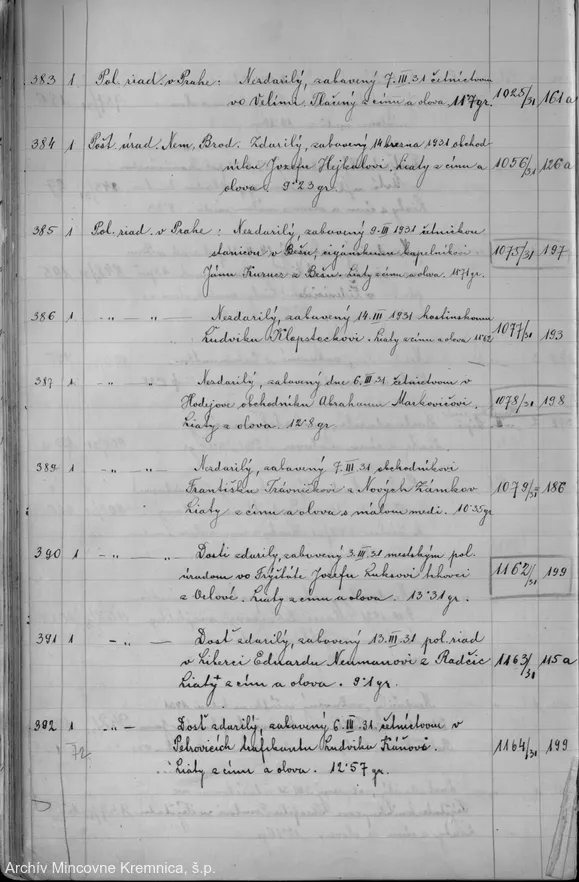 383 1 Pol. riad. v Prahe: Nezdarilý, zabavený 7.III.31 četníctvom
vo Velimi. Tlačený z cínu a olova. 11·7 gr. 1025/31 161a
384 1 Pošt. úrad. Nem. Brod. Zdarilý, zabavený 14 brezna 1931 obchod-
níku Jozefu Hejkalovi. Liaty z cínu a 1056/31 126a
olova. 9·23 gr.
385 1 Pol. riad. v Prahe: Nezdarilý, zabavený 9.III 1931 četníckou
stanicou v Bešu, cigánskemu kapelníkovi 1075/31 197
Jánu Kurucz z Bešu. Liaty z cínu a olova. gr.
386 1 - " - " - Nezdarilý, zabavený 14.III 1931 hostinskomu
Ludviku Klapstockovi. Liaty z cínu a olova 1077/31 193
387 1 - " - " - Nezdarilý, zabavený dne 6.III.31 četníctvom v
Hodejove obchodníku Abrahamu Markovičovi. 1078/31 198
Liaty z olova. 12·8 gr.
389 1 - " - " - Nezdarilý, zabavený 7.III.31 obchodníkovi
Františku Trávničkovi z Nových Zámkov 1079/31 186
Liaty z cínu a olova s málom medi. 10·35 gr
390 1 - " - " - Dosti zdarilý, zabavený 3.III.31 mestským pol.
úradom vo Frýštáte Jozefu Luksovi trhovci 1162/31 199
z Orlové. Liaty z cínu a olova. 13·31 gr.
391 1 - " - Dosť zdarilý, zabavený 13.III.31 pol. riad
v Liberci Eduardu Neumanovi z Radčic 1163/31 115a
Liatý z cínu a olova. 9·1 gr.
392 1 - " - Dosť zdarilý, zabavený 6.III.31. četníctvom v
72 Petrovicích trafikantu Ludviku 1164/31 199
Liaty z cínu a olova. 12·57 gr.
Archív Mincovne Kremnica, š.p.